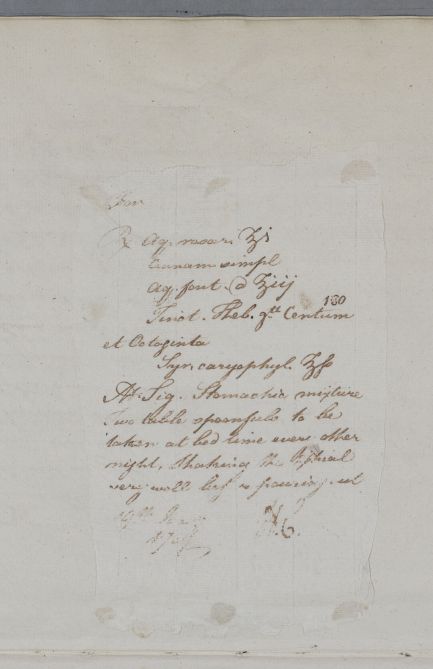 ℞ Aq. rosar. ℥i
Cinnam simpl
Aq. font. a ℥iij
180
Tinct. Theb. gtt Centum
et Octoginta
Syr. caryophyl. ℥ſs
Sig. Stomachic mixture
Two table spoonfuls to be
taken at bed time every other
night, shaking the Phial
very well before pouring out